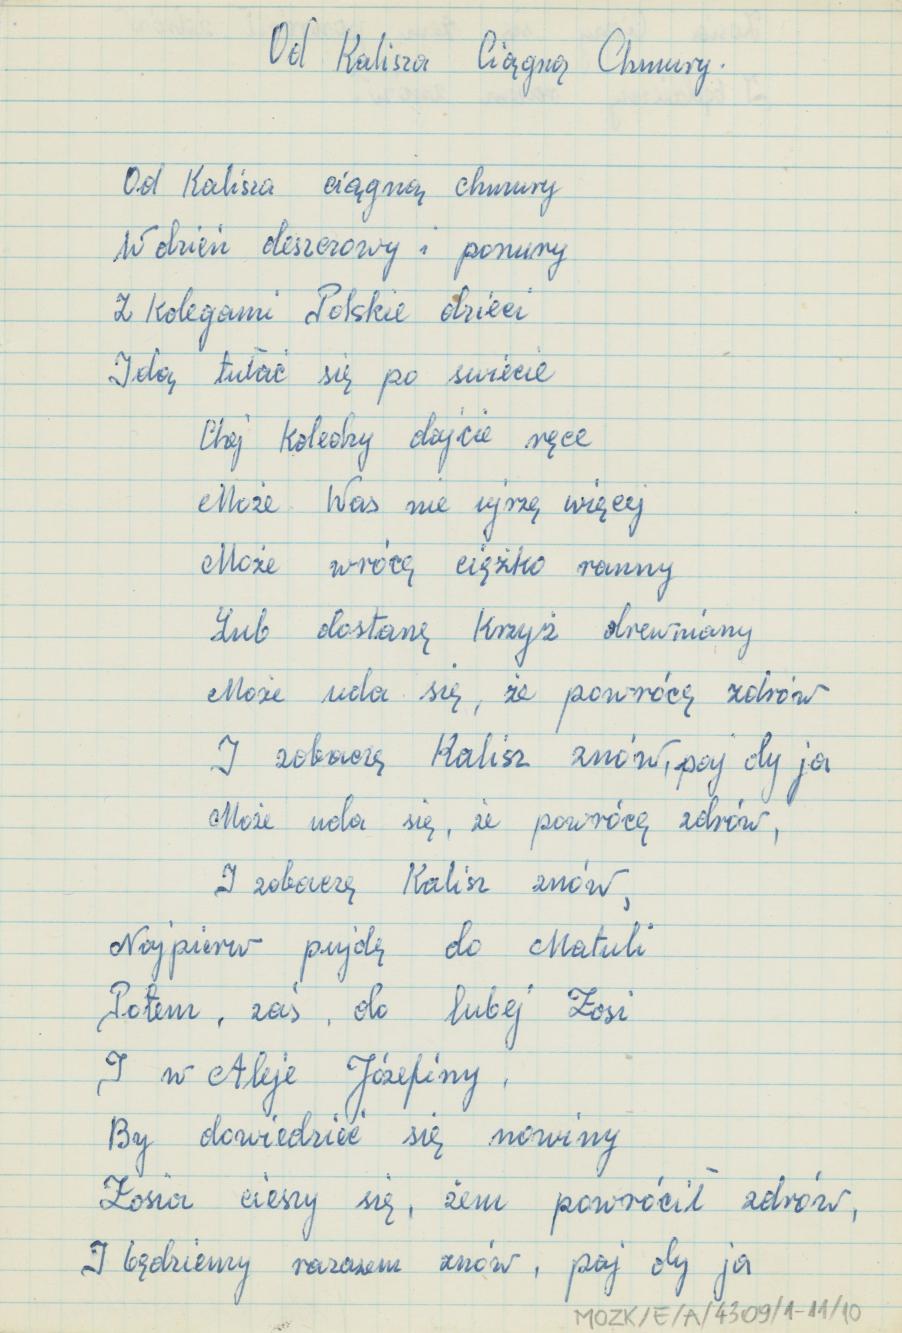 Od Kalisza Ciągną Chmury.
Od Kalisza ciągną chmury
W dzień deszczowy i ponury
Z Kolegami Polskie dzieci
Idą tułać się po swiecie
Chej Koledzy dajcie ręce
Może Was nie ujrzę więcej
Może wrócę ciężko ranny
Lub dostanę Krzyż drewniany
Może uda się, że powrócę zdrów
I zobaczę Kalisz znów, paj dy ja
Może uda się, że powrócę zdrów,
I zobaczę Kalisz znów,
Najpierw pujdę do Matuli
Potem, zaś, do lubej Zosi
I w Aleje Józefiny,
By dowiedzieć się nowiny
Zosia cieszy się, żem powrócił zdrów,
I będziemy razasem znów, paj dy ja
MOZK/E/A/4309/1-11/10